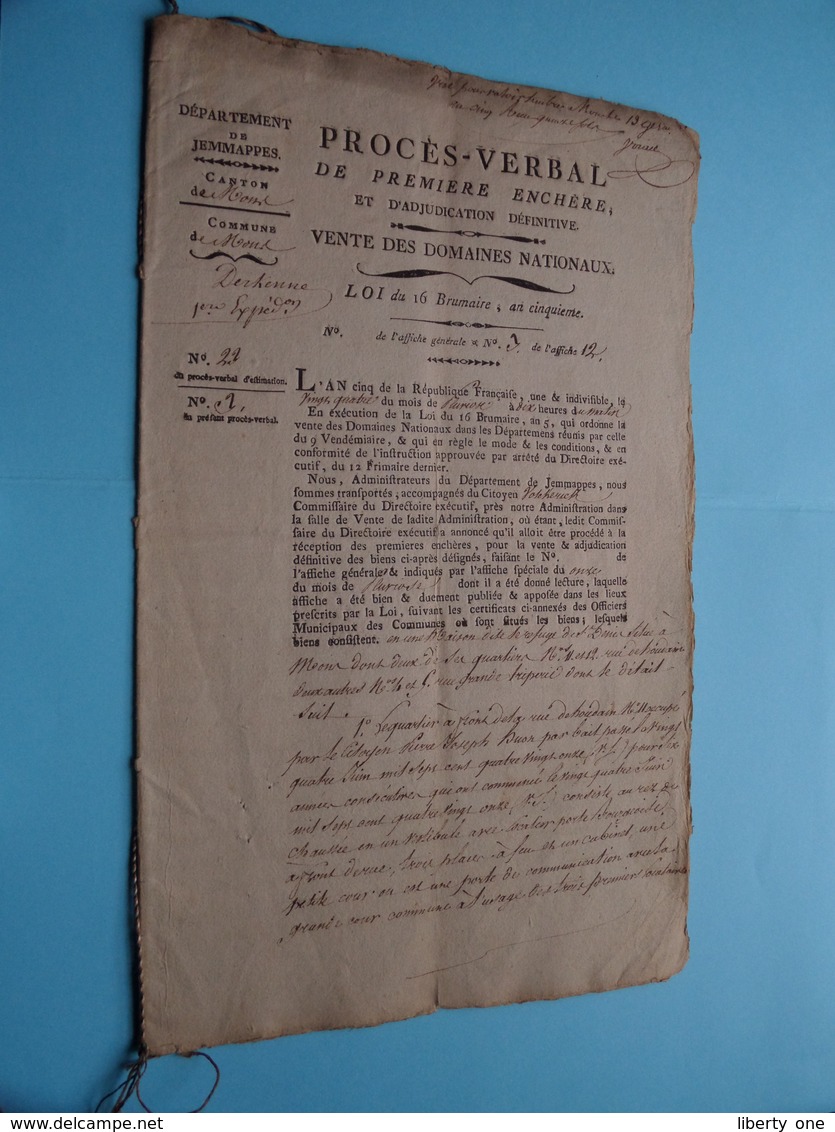 DÉPARTEMENT
DE
JEMMAPPES.
CANTON
de Mons
COMMUNE
de Mons
pour Expéd.on
No. 22
du procès-verbal d'estimation.
No. 2,
du présent procès-verbal.
PROCÈS-VERBAL
DE PREMIERE ENCHÈRE,
ET D'ADJUDICATION DÉFINITIVE.
VENTE DES DOMAINES NATIONAUX.
LOI du 16 Brumaire, an cinquieme.
No. de l'affiche générale & No. 3, de l'affiche 12.
L'AN cinq de la République Française, une & indivisible, le
vingt quatre du mois de Pluviose à dix heures du matin
En exécution de la Loi du 16 Brumaire, an 5, qui ordonne la
vente des Domaines Nationaux dans les Départemens réunis par celle
du 9 Vendémiaire, & qui en règle le mode & les conditions, & en
conformité de l'instruction approuvée par arrêté du Directoire exé-
cutif, du 12 Frimaire dernier.
Nous, Administrateurs du Département de Jemmappes, nous
sommes transportés, accompagnés du Citoyen
Commissaire du Directoire exécutif, près notre Administration dans
la salle de Vente de ladite Administration, où étant, ledit Commis-
saire du Directoire exécutif a annoncé qu'il alloit être procédé à la
réception des premieres enchères, pour la vente & adjudication
définitive des biens ci-après désignés, faisant le No. de
l'affiche générale & indiqués par l'affiche spéciale du onze
du mois de Pluviose dont il a été donné lecture, laquelle
affiche a été bien & duement publiée & apposée dans les lieux
prescrits par la Loi, suivant les certificats ci-annexés des Officiers
Municipaux des Communes où sont situés les biens; lesquels
biens consistent. en une Maison dite le refuge de St. Denis située à
Mons dont deux de ses quartiers Nos. 11 et 12. rue de houdain
deux autres Nos. 4 et 5. rue grande triperie dont le détail
suit.
1o. Le quartier à front de la rue de houdain No. 11 occupé
par le Citoyen Pierre Joseph Buon par bail passé le vingt
quatre Juin mil sept cent quatre vingt onze (V. S.) pour six
années consécutives qui ont commencé le vingt quatre Juin
mil sept cent quatre vingt onze (V. S.) consiste au rez de
chaussée en un vestibule avec escalier porte bourgeoise
à front de rue, trois places à feu et un cabinet, une
petite cour où est une porte de communication avec la
grande cour commune à l'usage des trois premiers locataires
liberty one